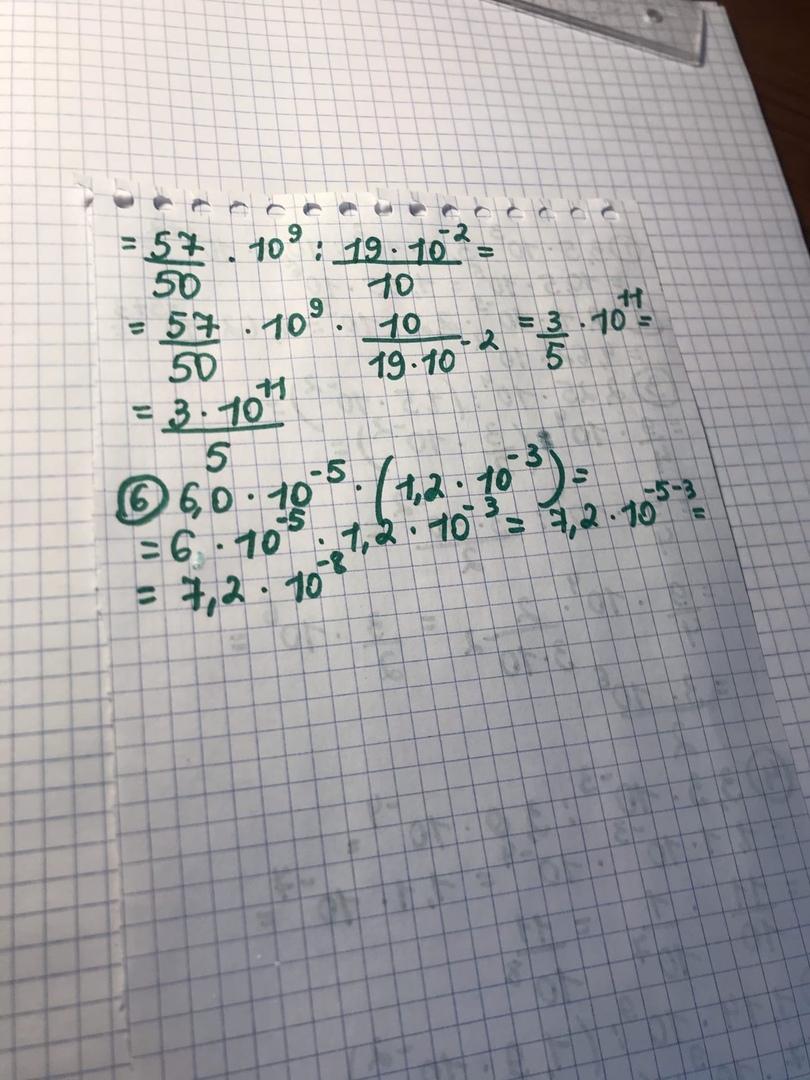 = 57/50 · 10⁹ : 19 · 10⁻²/10 =
= 57/50 · 10⁹ · 10/19 · 10⁻² = 3/5 · 10¹¹ =
= 3 · 10¹¹/5
⑥ 6,0 · 10⁻⁵ · (1,2 · 10⁻³) =
= 6 · 10⁻⁵ · 1,2 · 10⁻³ = 7,2 · 10⁻⁵⁻³ =
= 7,2 · 10⁻⁸